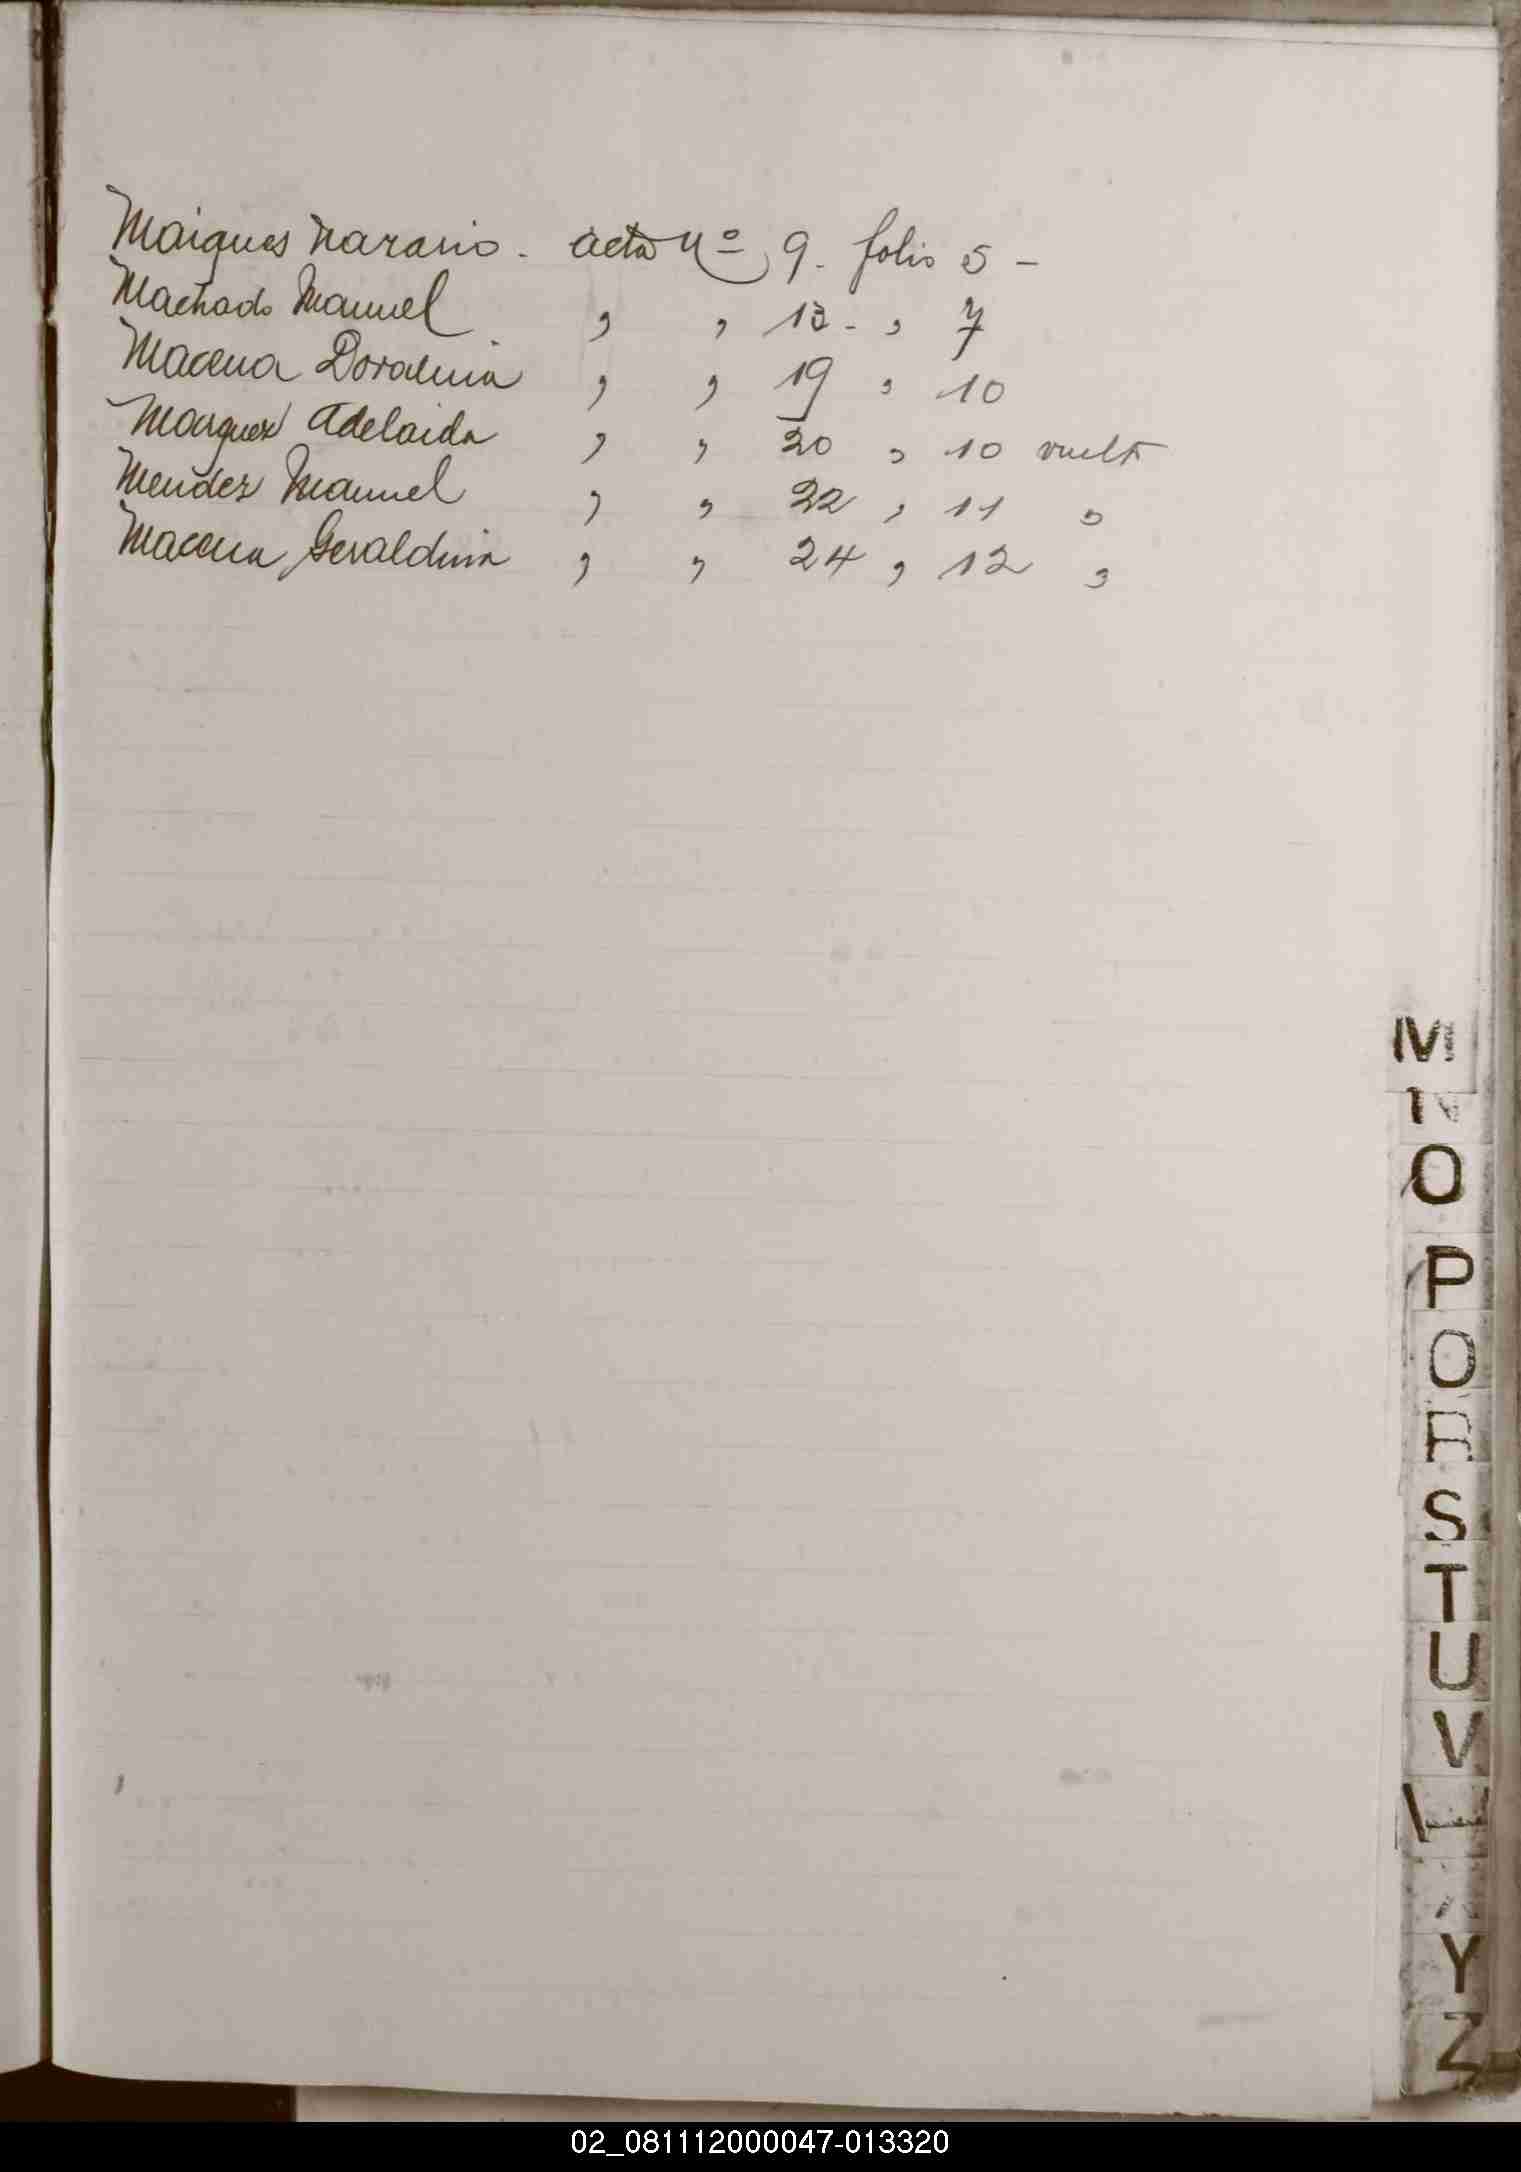 Marques Nazario. acta Nº 9. folio 5 -
Machado Manuel , , 13 - , 7
Macena Doralina , , 19 , 10
Marquez Adelaida , , 20 , 10 vuelta
Mendez Manuel , , 22 , 11 ,
Macena Geraldina , , 24 , 12 ,
M
N
O
P
Q
R
S
T
U
V
W
X
Y
Z
02_081112000047-013320